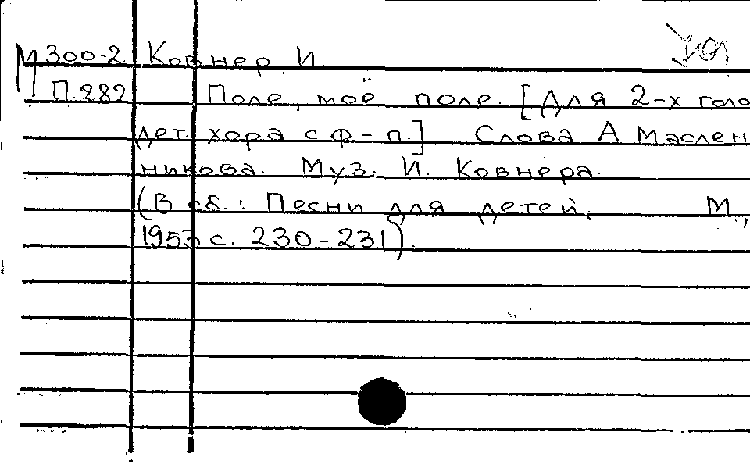 М 300-2 Ковнер И.
П.282 Поле, моё поле. [Для 2-х голо
дет. хора с ф-п.] Слова А Маслен
никова. Муз. И. Ковнера.
(В сб.: Песни для детей. М.,
1953 с. 230-231).